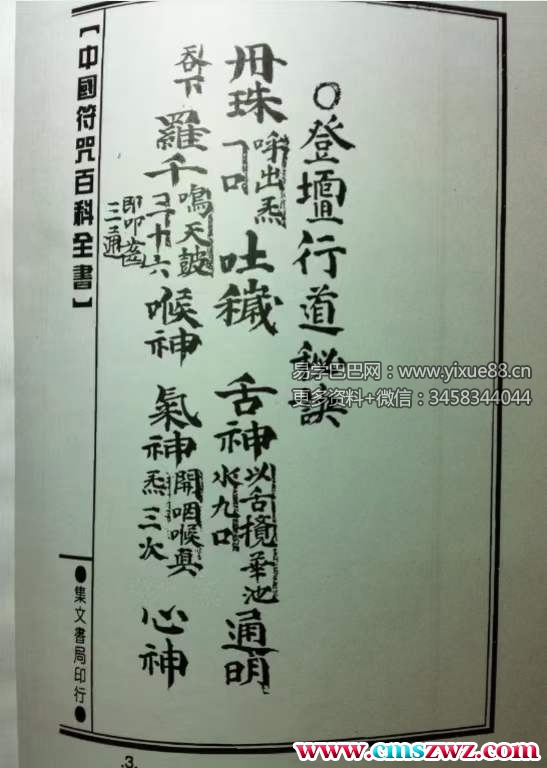 ○登壇行道秘訣
丹珠 呼出炁一口 吐穢 舌神 以舌攪華池水九口 通明
吞下 羅千 鳴天皷三十六 即叩齒三通 喉神 氣神 開咽喉真炁三次 心神
【中國符咒百科全書】
●集文書局印行●
.3.
易学巴巴网：www.yixue88.cn
更多资料+微信：3458344044
www.cmszwz.com